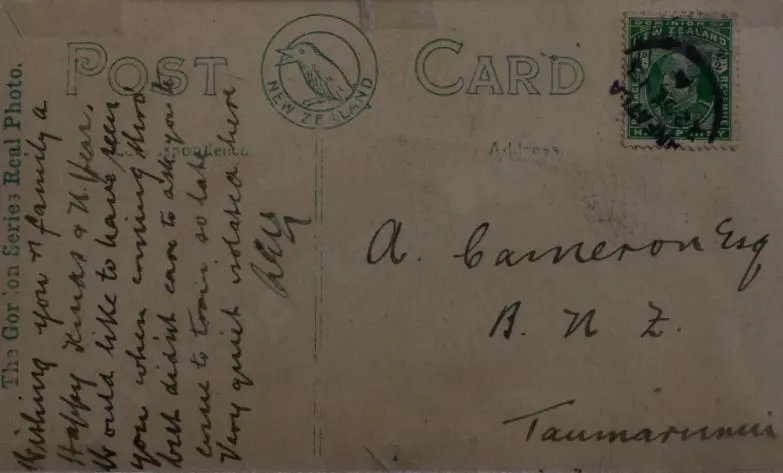 The Gordon Series Real Photo.
POST CARD
NEW ZEALAND
Correspondence
Address
DOMINION OF
NEW ZEALAND
POSTAGE & REVENUE
HALF PENNY
Wishing you & family a
Happy Xmas & N. Year.
Would like to have seen
you when coming thro
but didn't care to ask you to
come to train so late
Very quiet isolated here
A. Cameron Esq
B. N Z.
Taumarunui